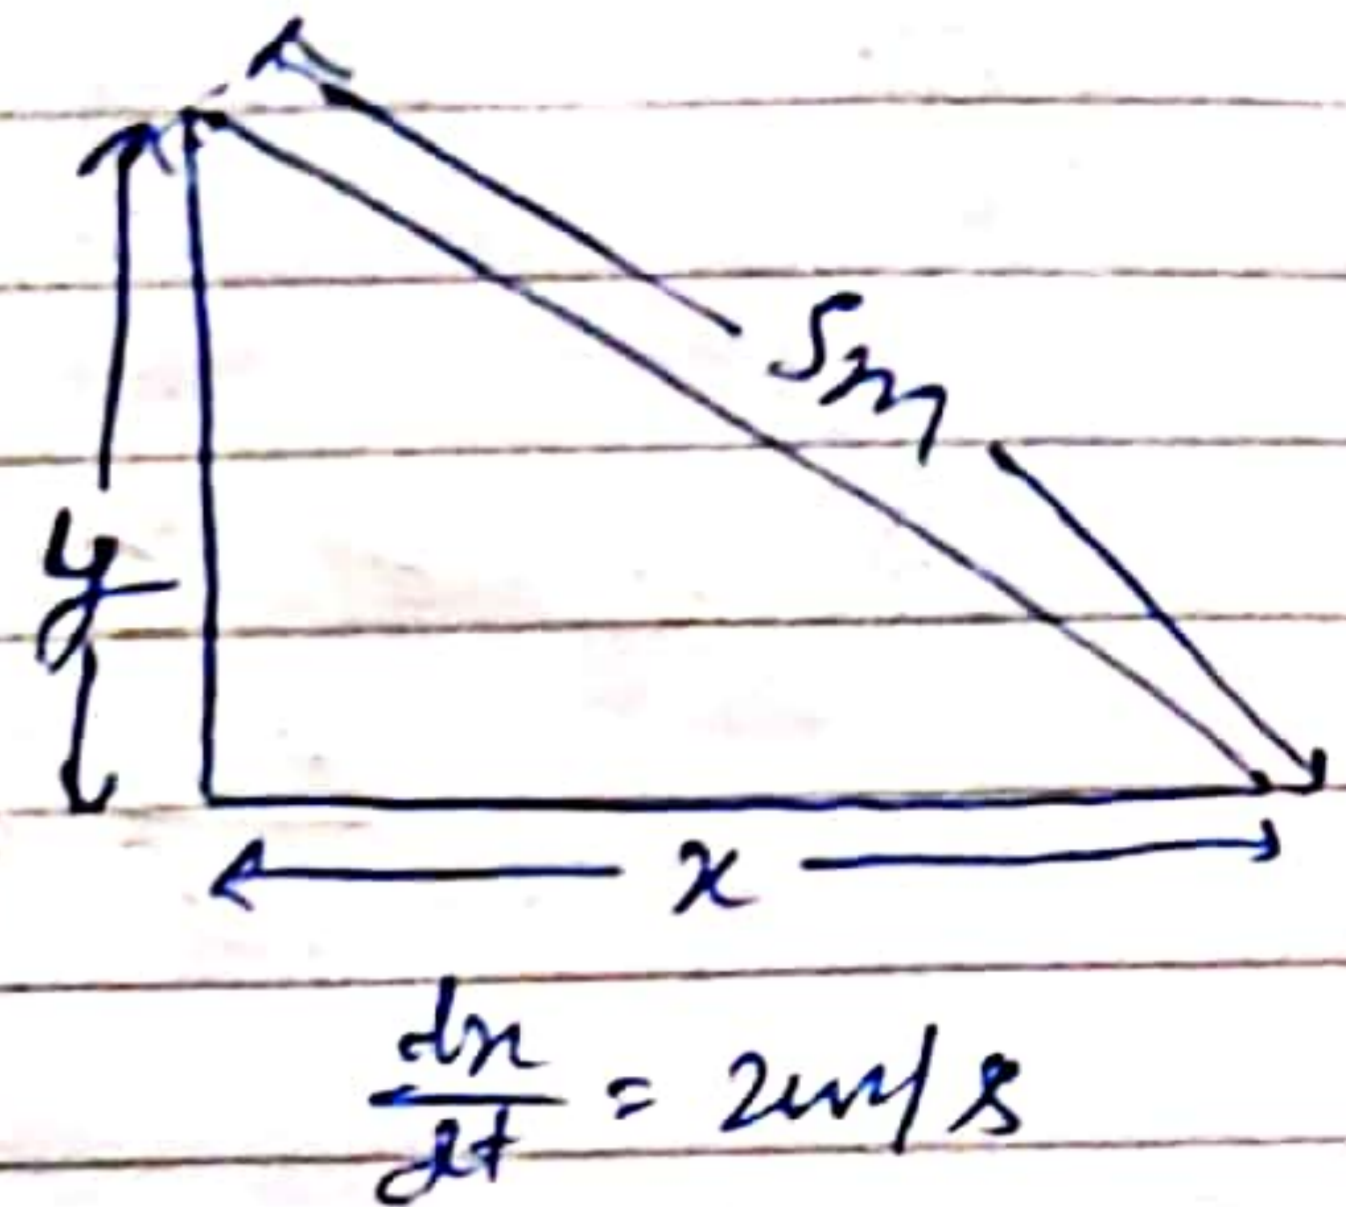 5m
y
x
dx/dt = 2cm/s